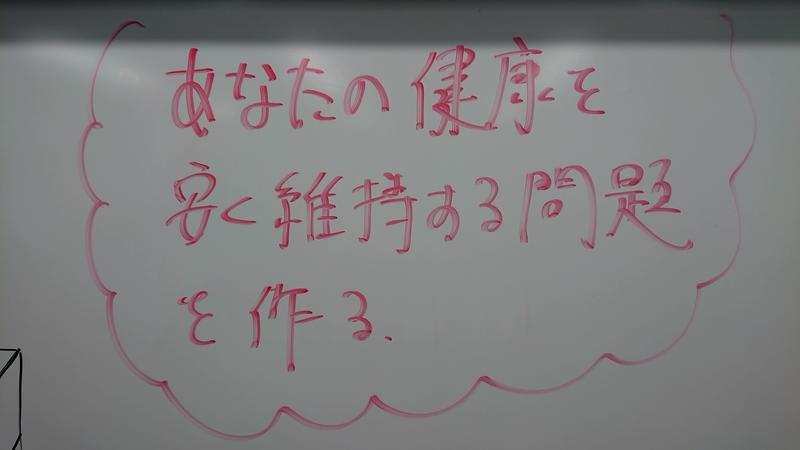 あなたの健康を
安く維持する問題
を作る.